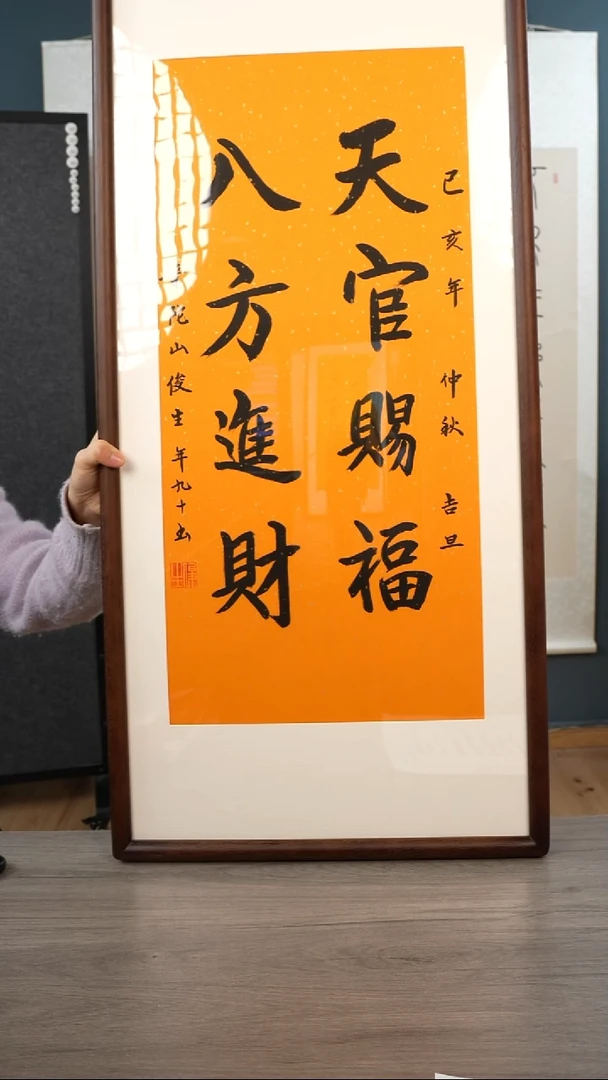 己亥年 仲秋 吉旦
天官賜福
八方進財
陀山俊生 年九十书